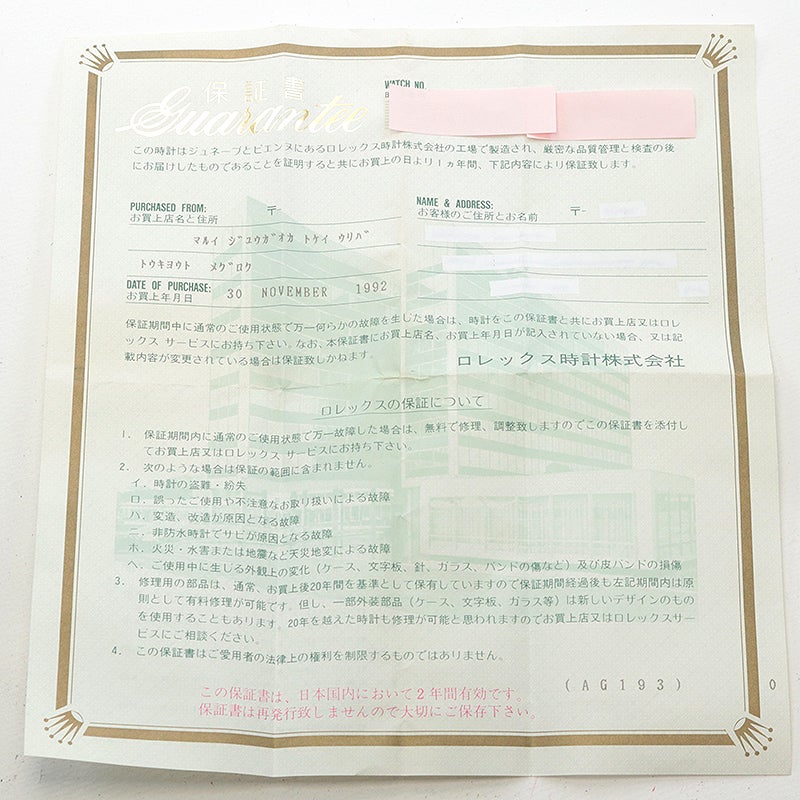 保証書
Guarantee
WATCH NO.
この時計はジュネーブとビエンヌにあるロレックス時計株式会社の工場で製造され、厳密な品質管理と検査の後
にお届けしたものであることを証明すると共にお買上の日より1ヵ年間、下記内容により保証致します。
PURCHASED FROM: 〒-
お買上店名と住所
マルイ ジユウガオカ トケイ ウリバ
トウキヨウト メグロク
DATE OF PURCHASE:
お買上年月日 30 NOVEMBER 1992
NAME & ADDRESS: 〒-
お客様のご住所とお名前
保証期間中に通常のご使用状態で万一何らかの故障を生じた場合は、時計をこの保証書と共にお買上店又はロレ
ックス サービスにお持ち下さい。なお、本保証書にお買上店名、お買上年月日が記入されていない場合、又は記
載内容が変更されている場合は保証致しかねます。
ロレックス時計株式会社
ロレックスの保証について
1. 保証期間内に通常のご使用状態で万一故障した場合は、無料で修理、調整致しますのでこの保証書を添付し
てお買上店又はロレックス サービスにお持ち下さい。
2. 次のような場合は保証の範囲に含まれません。
イ. 時計の盗難・紛失
ロ. 誤ったご使用や不注意なお取り扱いによる故障
ハ. 変造、改造が原因となる故障
ニ. 非防水時計でサビが原因となる故障
ホ. 火災・水害または地震など天災地変による故障
ヘ. ご使用中に生じる外観上の変化（ケース、文字板、針、ガラス、バンドの傷など）及び皮バンドの損傷
3. 修理用の部品は、通常、お買上後20年間を基準として保有していますので保証期間経過後も左記期間内は原
則として有料修理が可能です。但し、一部外装部品（ケース、文字板、ガラス等）は新しいデザインのもの
を使用することもあります。20年を越えた時計も修理が可能と思われますのでお買上店又はロレックスサー
ビスにご相談ください。
4. この保証書はご愛用者の法律上の権利を制限するものではありません。
(AG193) 0
この保証書は、日本国内において2年間有効です。
保証書は再発行致しませんので大切にご保存下さい。